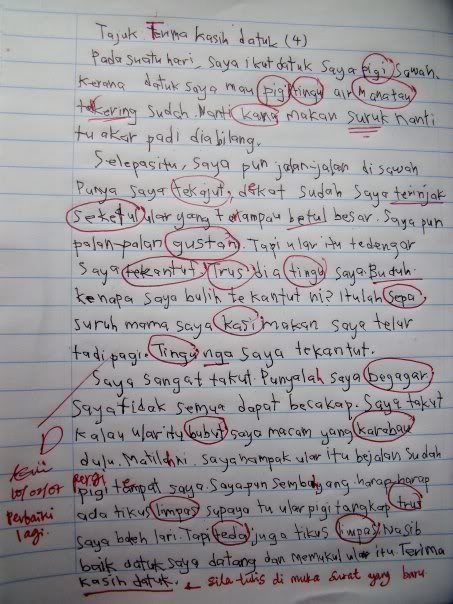 Tajuk Terima kasih datuk (4)
Pada suatu hari, saya ikut datuk saya pigi sawah.
kerana datuk saya mau pigi tingu air manatau
tekering sudah. Nanti kang makan suruk nanti
tu akar padi dia bilang.
Selepas itu, saya pun jalan-jalan di sawah
Punya saya tekajut, dekat sudah saya terinjak
seketul ular yang terlampau betul besar. Saya pun
palan-palan gustan. Tapi ular itu tedengar
saya tekantut. Trus dia tingu saya. Buduh.
kenapa saya bulih tekantut ni? Itulah sepa
suruh mama saya kasi makan saya telur
tadi pagi. Tingu nga saya tekantut.
Saya sangat takut. Punyalah saya begagar
Saya tidak semua dapat becakap. Saya takut
kalau ular itu bubut saya macam yang karabau
dulu. Matilah ni. Saya nampak ular itu bejalan sudah
pergi
pigi tempat saya. Saya pun sembahyang harap-harap
ada tikus limpas supaya tu ular pigi tangkap trus
saya boleh lari. Tapi teda juga tikus limpas. Nasib
baik datuk saya datang dan memukul ular itu. Terima
kasih datuk. ← sila tulis di muka surat yang baru.
D
10/02/07
Perbaiki
lagi.